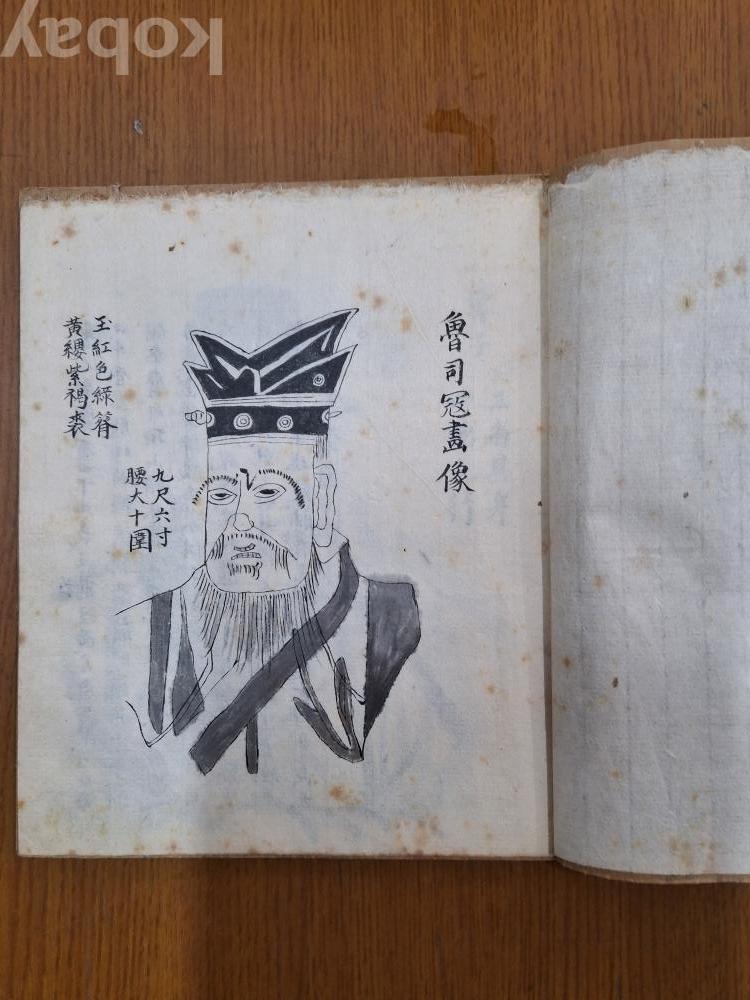 魯司冦畫像
九尺六寸
腰大十圍
玉紅色綠簪
黃纓紫褐裘
kobay